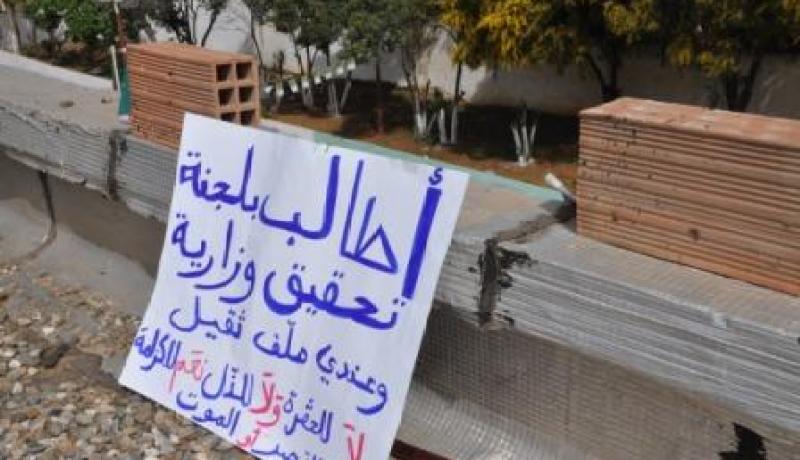 أطالب بلجنة
تحقيق وزارية
وعندي ملف ثقيل
لا للحقرة ولا للذل نعم للكرامة
أو الموت